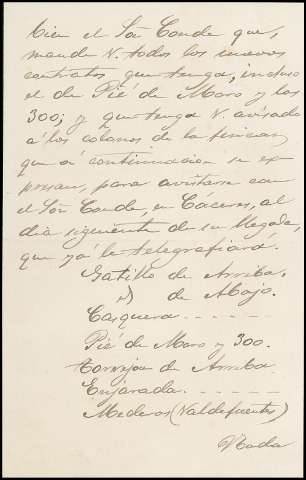 Dice el Sor Conde que,
mande V. todos los nuevos
contratos que tenga, incluso
el de Pié de Moro y los
300; y que tenga V. avisado
a los colonos de las fincas,
que á continuación se ex-
presan, para avistarse con
el Sor Conde, en Cáceres, al
dia siguiente de su llegada,
que ya le telegrafiará.
Gatillo de Arriba.
Id de Abajo.
Casquera
Pié de Moro y 300.
Torrejon de Arriba
Enjarada
Mederos (Valdefuentes)